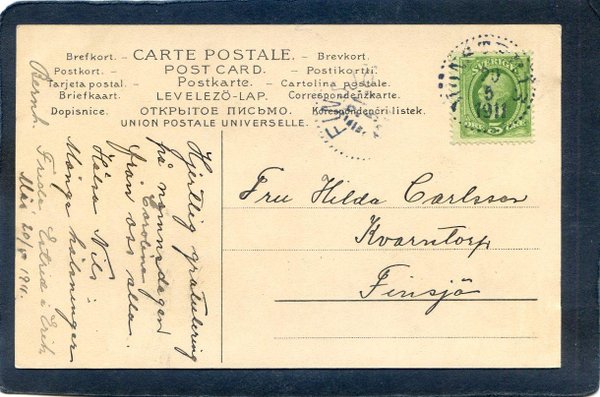 Brefkort. – CARTE POSTALE. – Brevkort.
Postkort. – POST CARD. – Postikortti.
Tarjeta postal. – Postkarte. – Cartolina postale.
Briefkaart. – LEVELEZŐ-LAP. – Correspondenzkarte.
Dopisnice. – ОТКРЫТОЕ ПИСЬМО. – Korespondenční listek.
UNION POSTALE UNIVERSELLE.
SVERIGE
5
5
1911
Fru Hilda Carlsson
Kvarntorp
Finsjö
Hjertlig gratulering
på namnsdagen
Carolina
från oss alla.
Hälsa Nils.
Många hälsningar
Bernh. Frida Estrid i Erik